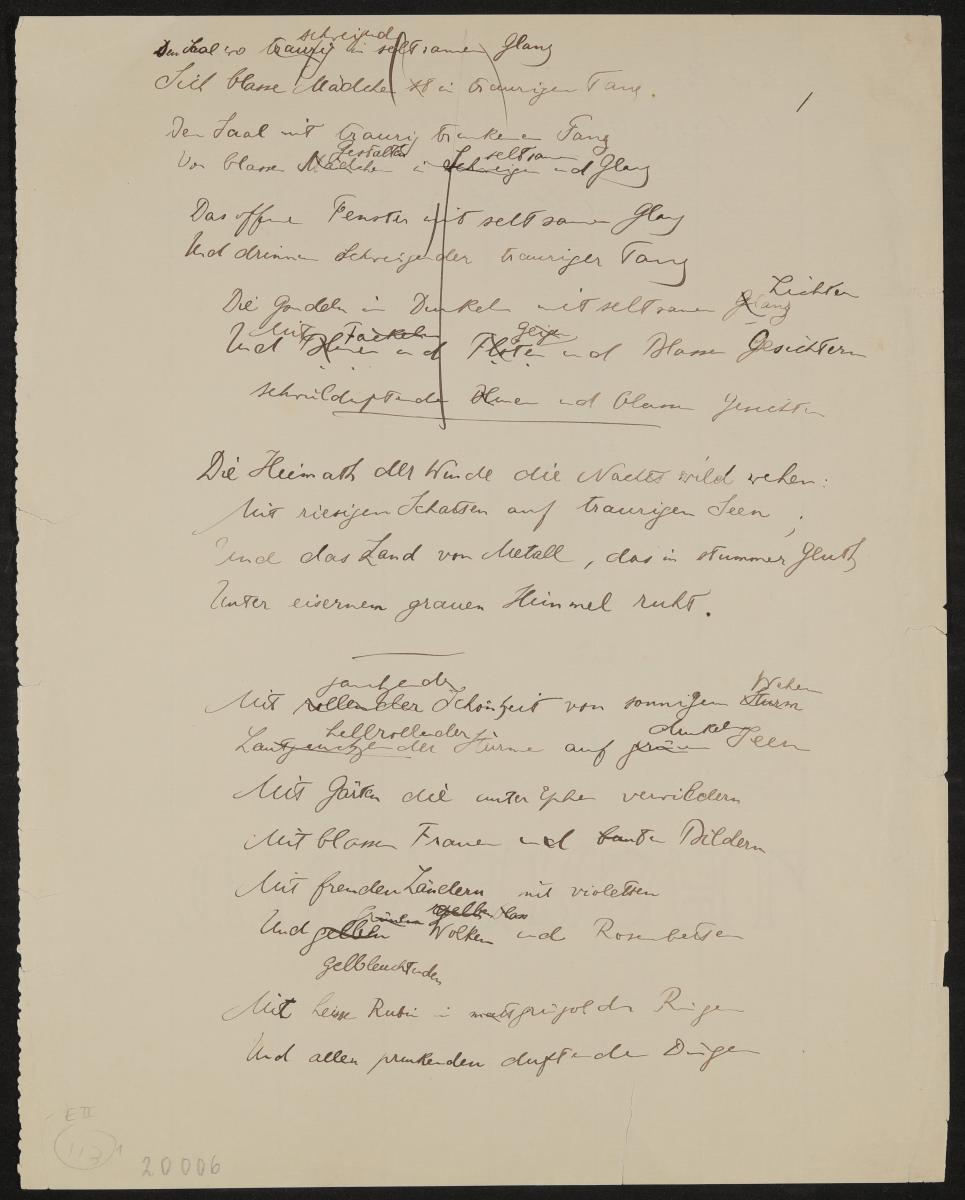 schweigend
Den Saal wo traurig in seltsamen Glanz
Sich blasse Mädchen in traurigen Tanz.
1
Den Saal mit traurig trunkenen Tanz
Gestalten seltsam
Von blassen Mädchen in Schweigen und Glanz
Das offne Fenster mit seltsamen Glanz
Und drinnen schweigender trauriger Tanz
Lichtern
Die Gondeln im Dunkeln mit seltsamen Glanz
Mit Fackeln Geigen
Und Blumen und Flöten und blassen Gesichtern
schwülduftenden Blumen und blassen Gesichtern
Die Heimath der Winde die Nachts wild wehen:
Mit riesigen Schatten auf traurigen Seen;
Und das Land von Metall, das in stummer Gluth
Unter eisernem grauen Himmel ruht.
jauchzender Wehen
Mit rollender Schönheit von sonnigem Sturm
hellrollender dunkeln
der Stürme auf grünen Seen
Mit Gärten die unter Epheu verwildern
Mit blassen Frauen und bunten Bildern
Mit fremden Ländern mit violetten
grünen gelben
Und gelben Wolken und Rosenbetten
gelbleuchtenden
Mit heisse Rubin in Ringen
Und allen prunkenden duftenden Dingen
E II
113
20006